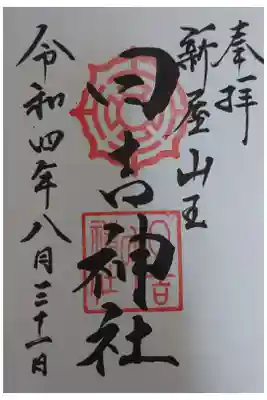 奉拝
新屋山王
日吉神社
令和四年八月三十一日